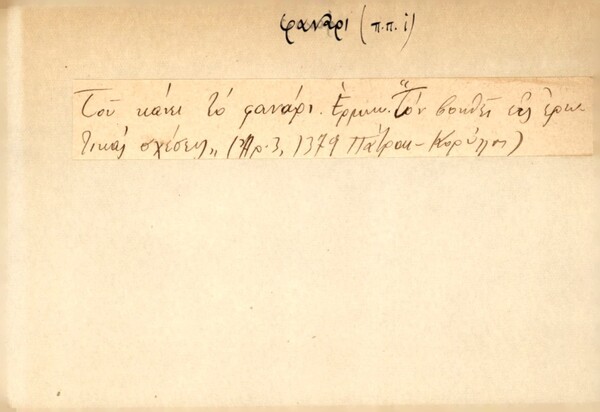 φανάρι (π.π. ἰ)
Τοῦ κάνει τὸ φανάρι. Ἑρμην. "Τὸν βοηθεῖ εἰς ἐρω-
τικὰς σχέσεις„ (Ἀρ. 3, 1379 Πάτραι - Κορύλλος)